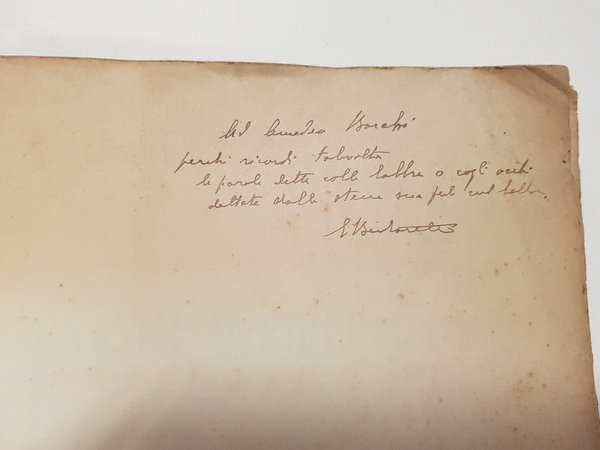 Ad Amedeo
perchè ricordi talvolta
le parole dette colle labbra o cogli occhi
dettate dalla stessa sua fede nel bello.